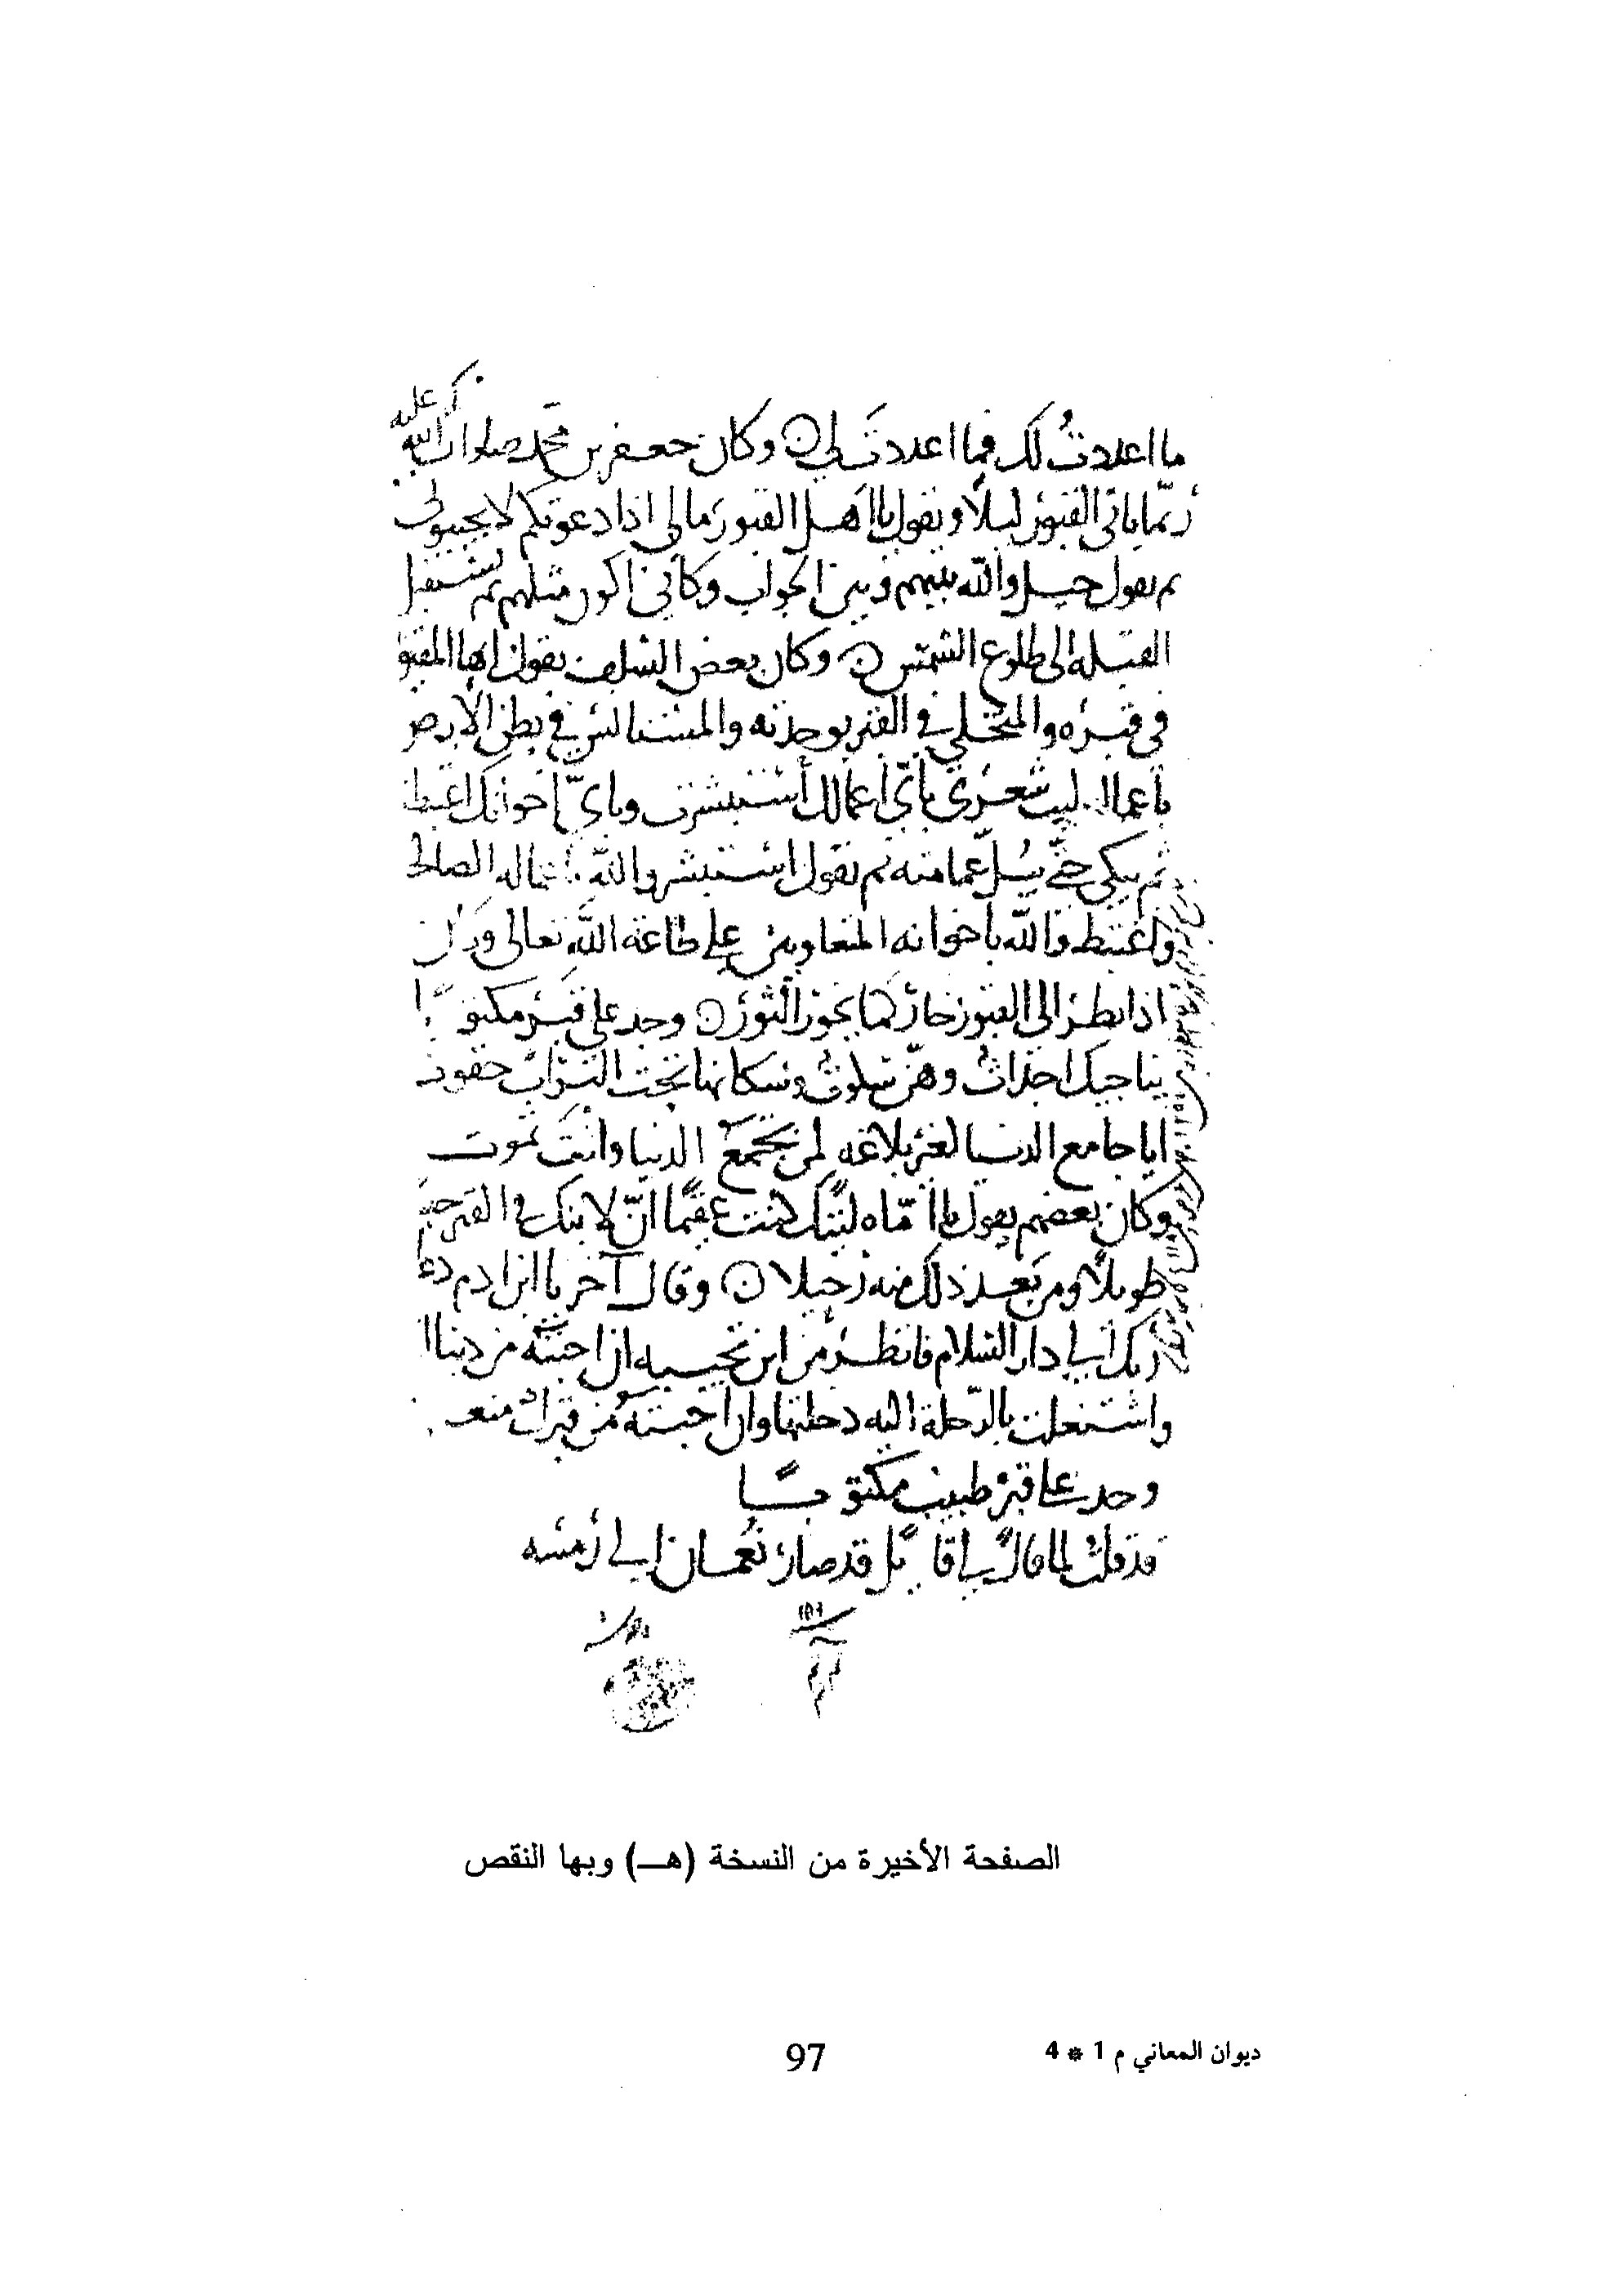 ما اعددتُ لك فما اعددتَ لي ن وكان جعفر بن محمد صلوات الله عليه
ربّما ياتى القبور ليلًا ويقول يا اهل القبور مالى اذا دعوتكم لا تجيبونى
ثم يقول حيل والله بينهم وبين الجواب وكانى اكون مثلهم ثم يستقبل
القبله الى طلوع الشمس ن وكان بعض السلف يقول ايها المقبو
فى قبره والمتخلي فى القبر بوحدته والمستانس فى بطن الارض
باعماله ليت شعرى بأيّ اعمالك استبشرت وباىّ اخوانك اغتبط
ثم يبكى حتى يبلّ عمامته ثم يقول استبشر والله باعماله الصالح
واغتبط والله باخوانه المتعاونين على طاعة الله تعالى وكان
اذا نظر الى القبور خار كما يخور الثور ن وجد على قبر مكتوبًا
يناجيك اجداث وهنّ سكوت وسكانها تحت التراب خفوت
ايا جامع الدنيا لغير بلاغه لمن تجمع الدنيا وانت تموت
وكان بعضهم يقول يا امّاه ليتك كنت عقيمًا انّ لابنك فى القبر حبسًا
طويلًا ومن بعد ذلك منه رحيلا ن وقال آخر يا ابن ادم دعا
ربك الى دار السلام فانظر من اين تجيبه ان اجبته من دنيا
واشتغلت بالرحلة اليه دخلتها وان اجبته من قبرك منعـ
وجد على قبر طبيب مكتوبـًـا
قد قلت لما قال لي قايل قد صار نعمان الى رمسه
١٥٦
الصفحة الأخيرة من النسخة (هـ) وبها النقص
ديوان المعاني م 1 * 4
97